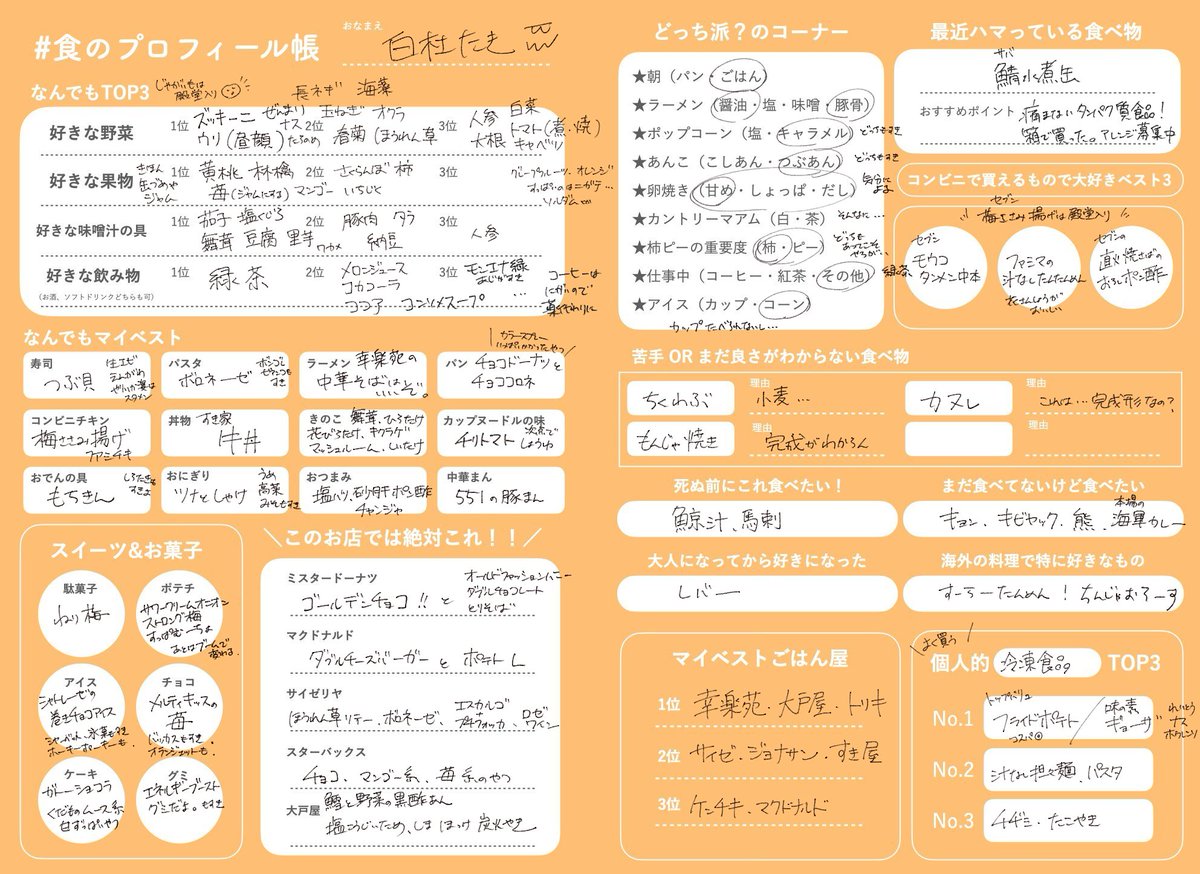 #食のプロフィール帳
おなまえ
白杜たき
なんでもTOP3
じゃがいもは
殿堂入り
長ネギ 海藻
好きな野菜
1位 ズッキーニ ぜんまい
ウリ(昼顔) ナス たけのめ
2位 玉ねぎ オクラ
春菊 ほうれん草
3位 人参 白菜
大根 トマト(煮・焼)
キャベツ
好きな果物
きほん
缶づめや
ジャム
1位 黄桃 林檎
苺(ジャムにする) マンゴー
2位 さくらんぼ 柿
いちじく
3位 グレープフルーツ、オレンジ
すっぱいのはニガテ…
ソルダム…
好きな味噌汁の具
1位 茄子 塩くじら
舞茸 豆腐 里芋 ワカメ
2位 豚肉 タラ
納豆
3位 人参
好きな飲み物
(お酒、ソフトドリンクどちらも可)
1位 緑茶
2位 メロンジュース
コカコーラ
ココア コンソメスープ
3位 モンエナ緑
あじがすき
…
コーヒーは
にがいので
薬代わりに
なんでもマイベスト
寿司
つぶ貝
生エビ
えんがわ
スタメン
パスタ
ボロネーゼ
すき
ラーメン 幸楽苑の
中華そばはいいぞ。
パン チョコドーナツと
チョココロネ
カラースプレー
いっぱいかかったやつ
コンビニチキン
梅ささみ揚げ
ファミチキ
丼物 すき家
牛丼
きのこ 舞茸、ひらたけ
花びらたけ、キクラゲ
マッシュルーム、しいたけ
カップヌードルの味
チリトマト
次点で
しょうゆ
おでんの具
もちきん
しらたきも
すきよ
おにぎり
ツナとしゃけ
うめ
高菜
みそもすき
おつまみ
塩ハツ、砂肝ポン酢
チャンジャ
中華まん
551の豚まん
スイーツ&お菓子
駄菓子
ねり梅
ポテチ
サワークリームオニオン
ストロング梅
すっぱむーちょ
あとはブームで
変わる。
アイス
シャトレーゼの
巻きチョコアイス
シャーベット、氷菓もすき
ホーキーポーキーも。
チョコ
メルティキッスの
苺
バッカスもすき。
オランジェットも。
ケーキ
ガトーショコラ
くだものムース系
白すっぱいやつ
グミ
エネルギーブースト
グミだよ。もすき
＼このお店では絶対これ！！／
ミスタードーナツ
ゴールデンチョコ!! と
オールドファッションハニー
ダブルチョコレート
とりそば
マクドナルド
ダブルチーズバーガー と ポテトL
サイゼリヤ
ほうれん草ソテー、ボロネーゼ、エスカルゴ
+
プチフォッカ、ロゼ
ワイン
スターバックス
チョコ、マンゴー系、苺系のやつ
大戸屋
鱈と野菜の黒酢あん
塩こうじいため、しまほっけ 炭火やき
どっち派？のコーナー
★朝（パン・ごはん）
★ラーメン（醤油・塩・味噌・豚骨）
★ポップコーン（塩・キャラメル）どっちもすき
★あんこ（こしあん・つぶあん）どっちもすき
★卵焼き（甘め・しょっぱ・だし）気分に
よる
★カントリーマアム（白・茶）そんなに…
★柿ピーの重要度（柿・ピー）どっちも
あってこそ
やろがい
★仕事中（コーヒー・紅茶・その他）緑茶
★アイス（カップ・コーン）
カップたべられないし…
最近ハマっている食べ物
サバ
鯖水煮缶
おすすめポイント
痛まないタンパク質食品！
箱で買った。アレンジ募集中
コンビニで買えるもので大好きベスト3
セブン
＼梅ささみ揚げは殿堂入り／
セブン
モウコ
タンメン中本
ファミマの
汁なしたんたんめん
花さんしょうが
おいしい
セブンの
直火焼さばの
おろしポン酢
苦手 OR まだ良さがわからない食べ物
ちくわぶ
理由
小麦…
カヌレ
理由
これは…完成形なの？
もんじゃ焼き
理由
完成がわからん
理由
死ぬ前にこれ食べたい！
鯨汁、馬刺
まだ食べてないけど食べたい
キョン、キビヤック、熊、本場の
海軍カレー
大人になってから好きになった
レバー
海外の料理で特に好きなもの
すーらーたんめん！ちんじゃおろーす
マイベストごはん屋
1位 幸楽苑、大戸屋、トリキ
2位 サイゼ、ジョナサン、すき屋
3位 ケンチキ、マクドナルド
よく買う
個人的 冷凍食品 TOP3
No.1
トップバリュ
フライドポテト
コスパ◎
味の素
ギョーザ
れいとう
ナス
ホウレンソウ
No.2
汁なし担々麺、パスタ
No.3
チヂミ・たこやき